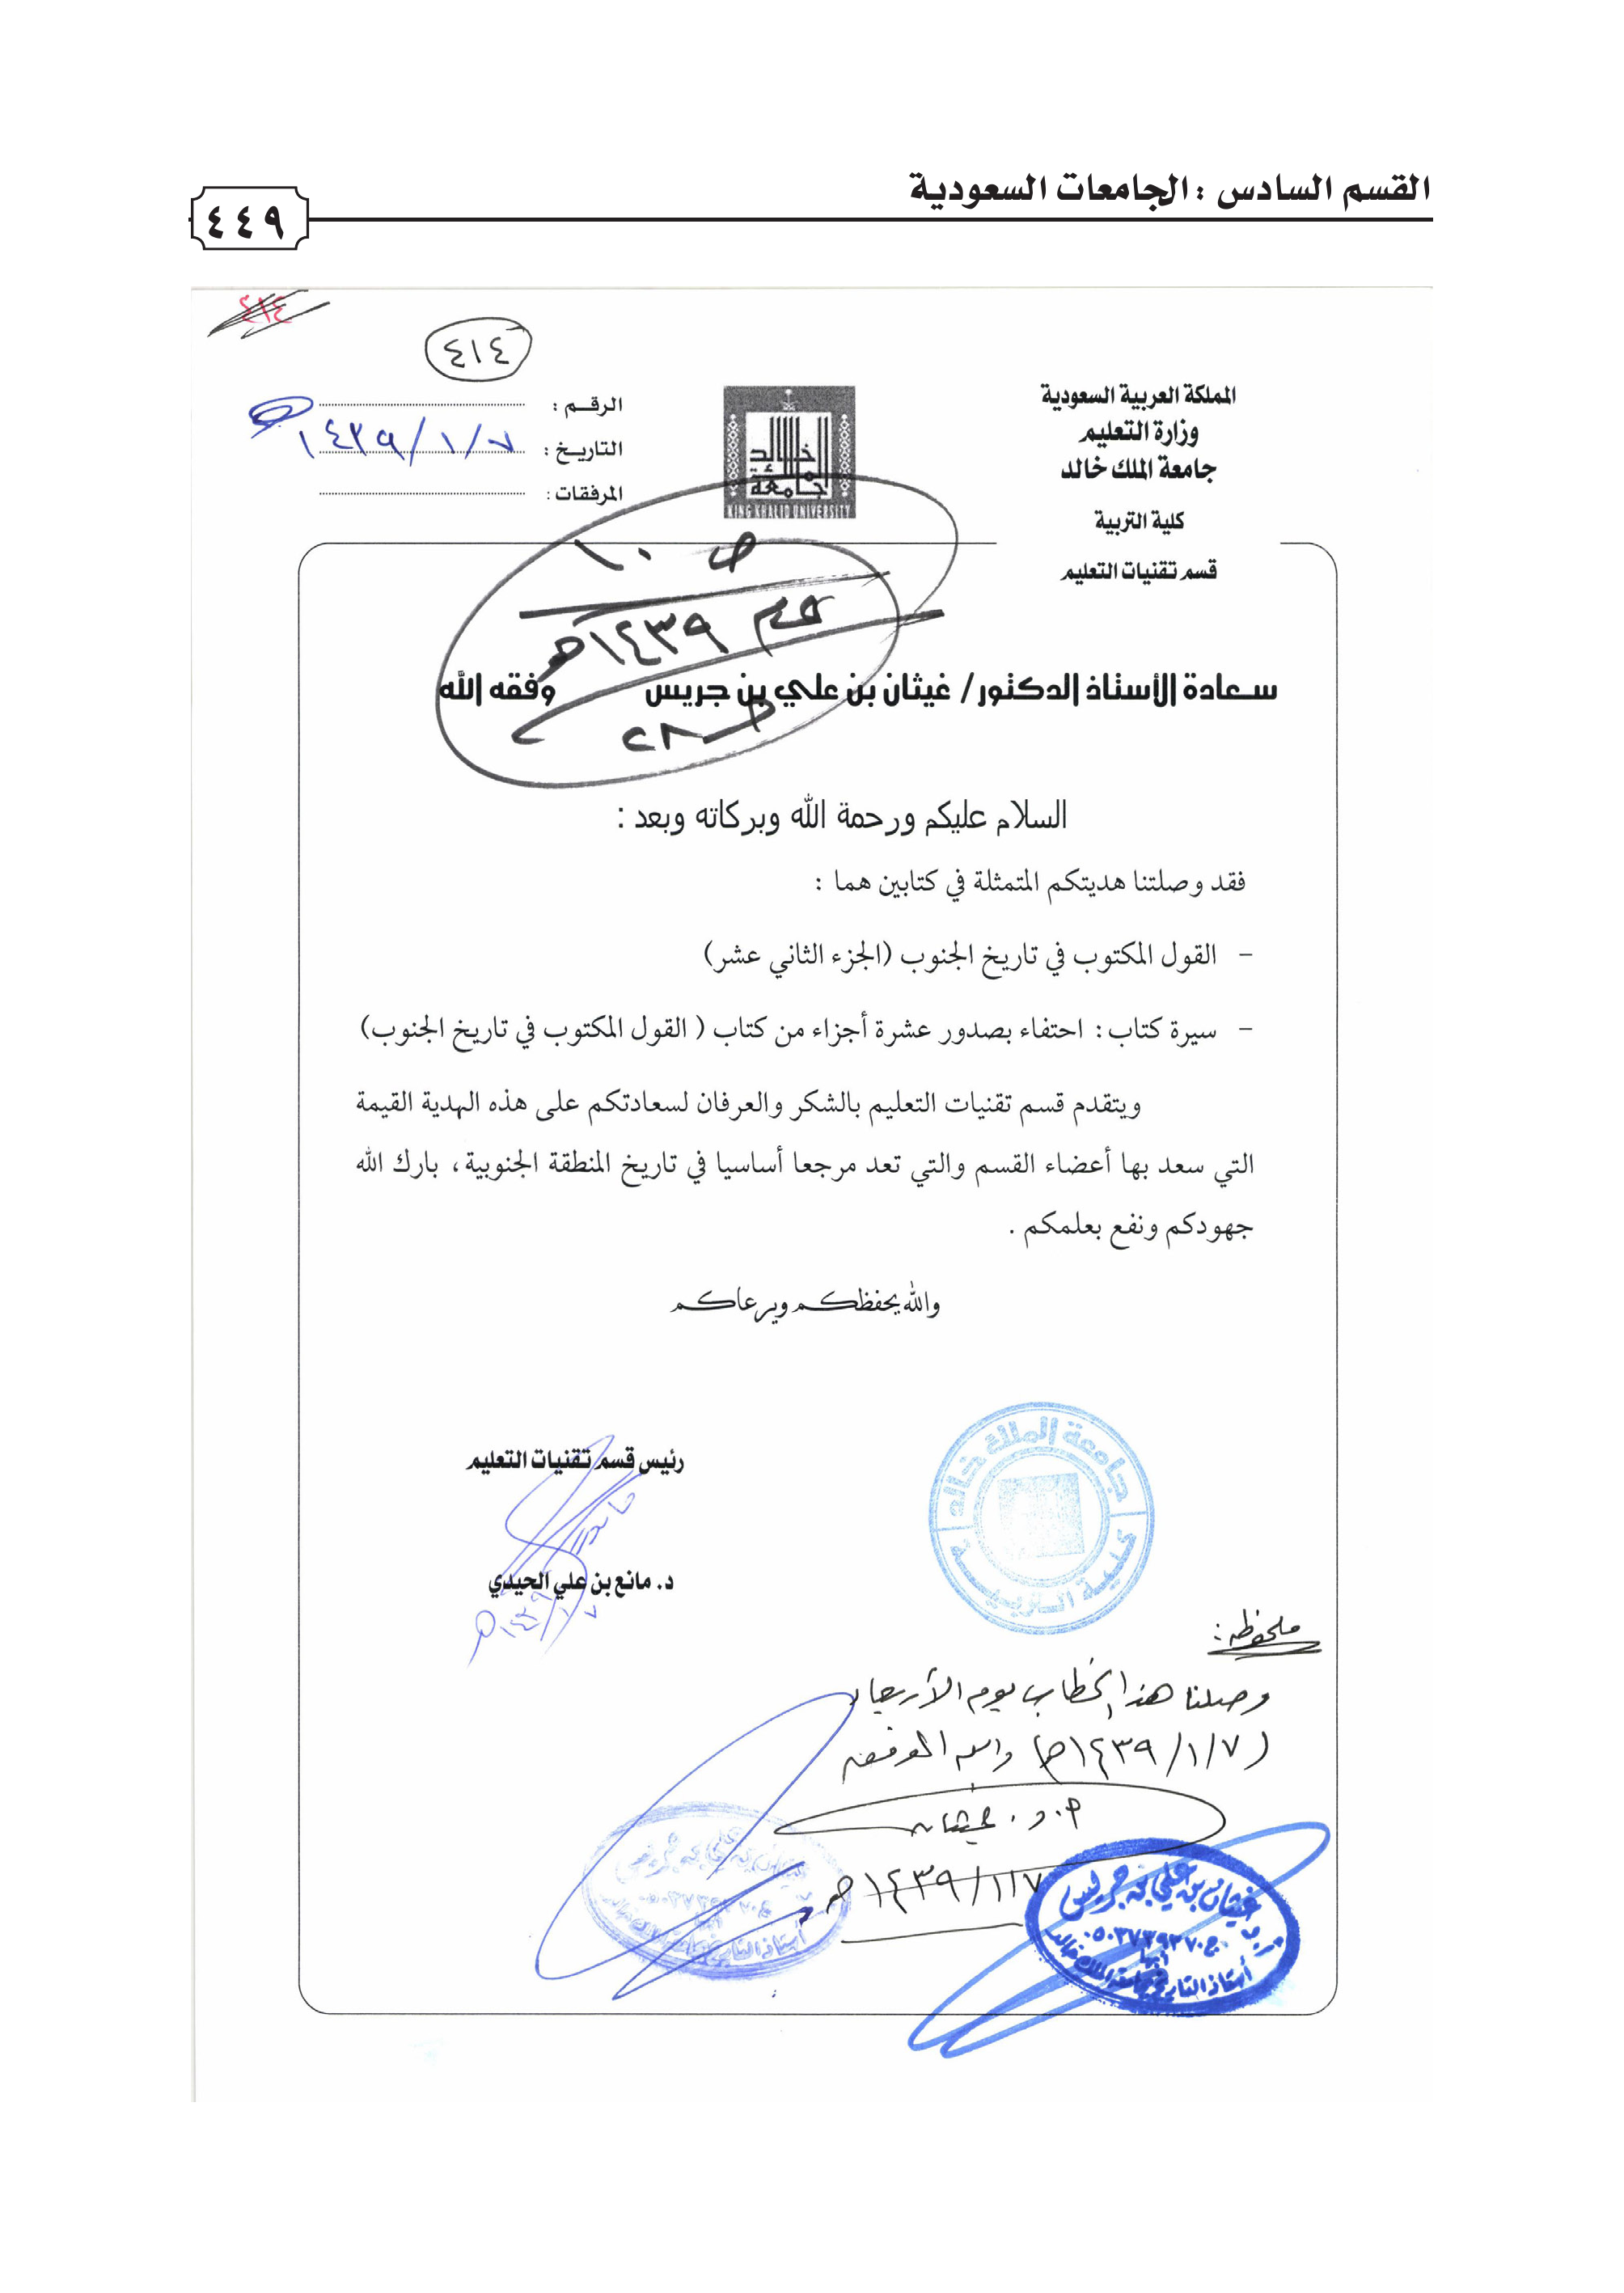 القسم السادس : الجامعات السعودية
٤٤٩
٤١٤
٤١٤
المملكة العربية السعودية
وزارة التعليم
جامعة الملك خالد
كلية التربية
قسم تقنيات التعليم
جامعة الملك خالد
KING KHALID UNIVERSITY
الرقم :
التاريخ : ١٤٣٩/١/٧هـ
المرفقات :
ص ١٠
١٤٣٩هـ
سعادة الأستاذ الدكتور/ غيثان بن علي بن جريس وفقه الله
السلام عليكم ورحمة الله وبركاته وبعد :
فقد وصلتنا هديتكم المتمثلة في كتابين هما :
- القول المكتوب في تاريخ الجنوب (الجزء الثاني عشر)
- سيرة كتاب: احتفاء بصدور عشرة أجزاء من كتاب ( القول المكتوب في تاريخ الجنوب)
ويتقدم قسم تقنيات التعليم بالشكر والعرفان لسعادتكم على هذه الهدية القيمة
التي سعد بها أعضاء القسم والتي تعد مرجعا أساسيا في تاريخ المنطقة الجنوبية، بارك الله
جهودكم ونفع بعلمكم .
والله يحفظكم ويرعاكم
رئيس قسم تقنيات التعليم
د. مانع بن علي الحيدي
١٤٣٩/١/٧هـ
جامعة الملك خالد
كلية التربية
ملحوظة :
وصلنا هذا الخطاب يوم الأربعاء
(١٤٣٩/١/٧هـ) والله الموفق
أ.د. غيثان
١٤٣٩/١/٧هـ
غيثان بن علي بن جريس
أبها
أستاذ التاريخ بجامعة الملك خالد